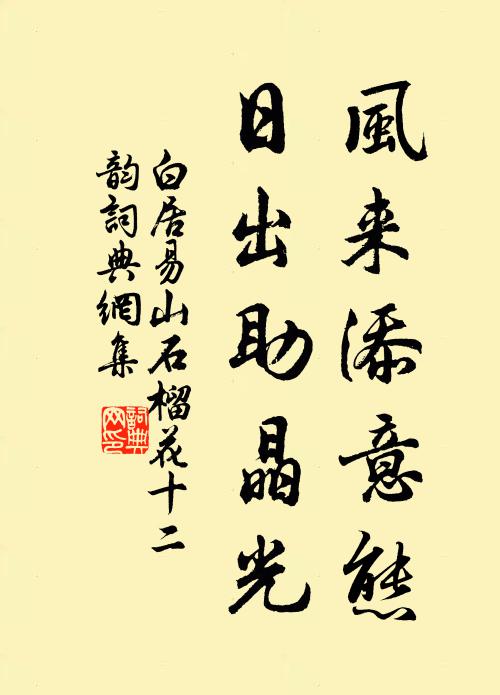 風来添意態
日出助晶光
白居易山石榴花十二
韵詞典網集
詞典
网印